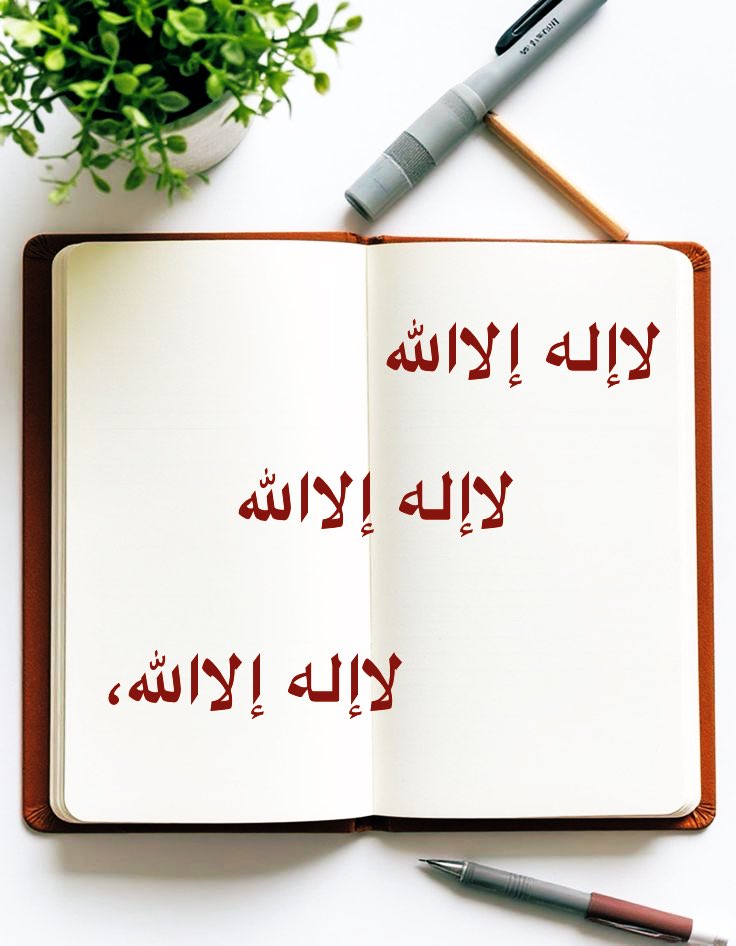 لاإله إلاالله
لاإله إلاالله
لاإله إلاالله،